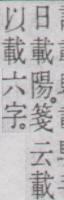 日載陽。箋云載
以載六字。